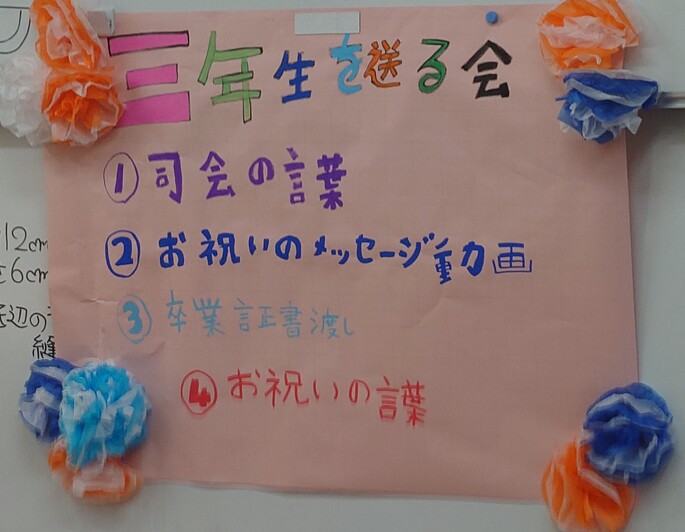 三年生を送る会
①司会の言葉
②お祝いのメッセージ動画
③卒業証書渡し
④お祝いの言葉
12cm
6cm
辺の
縫